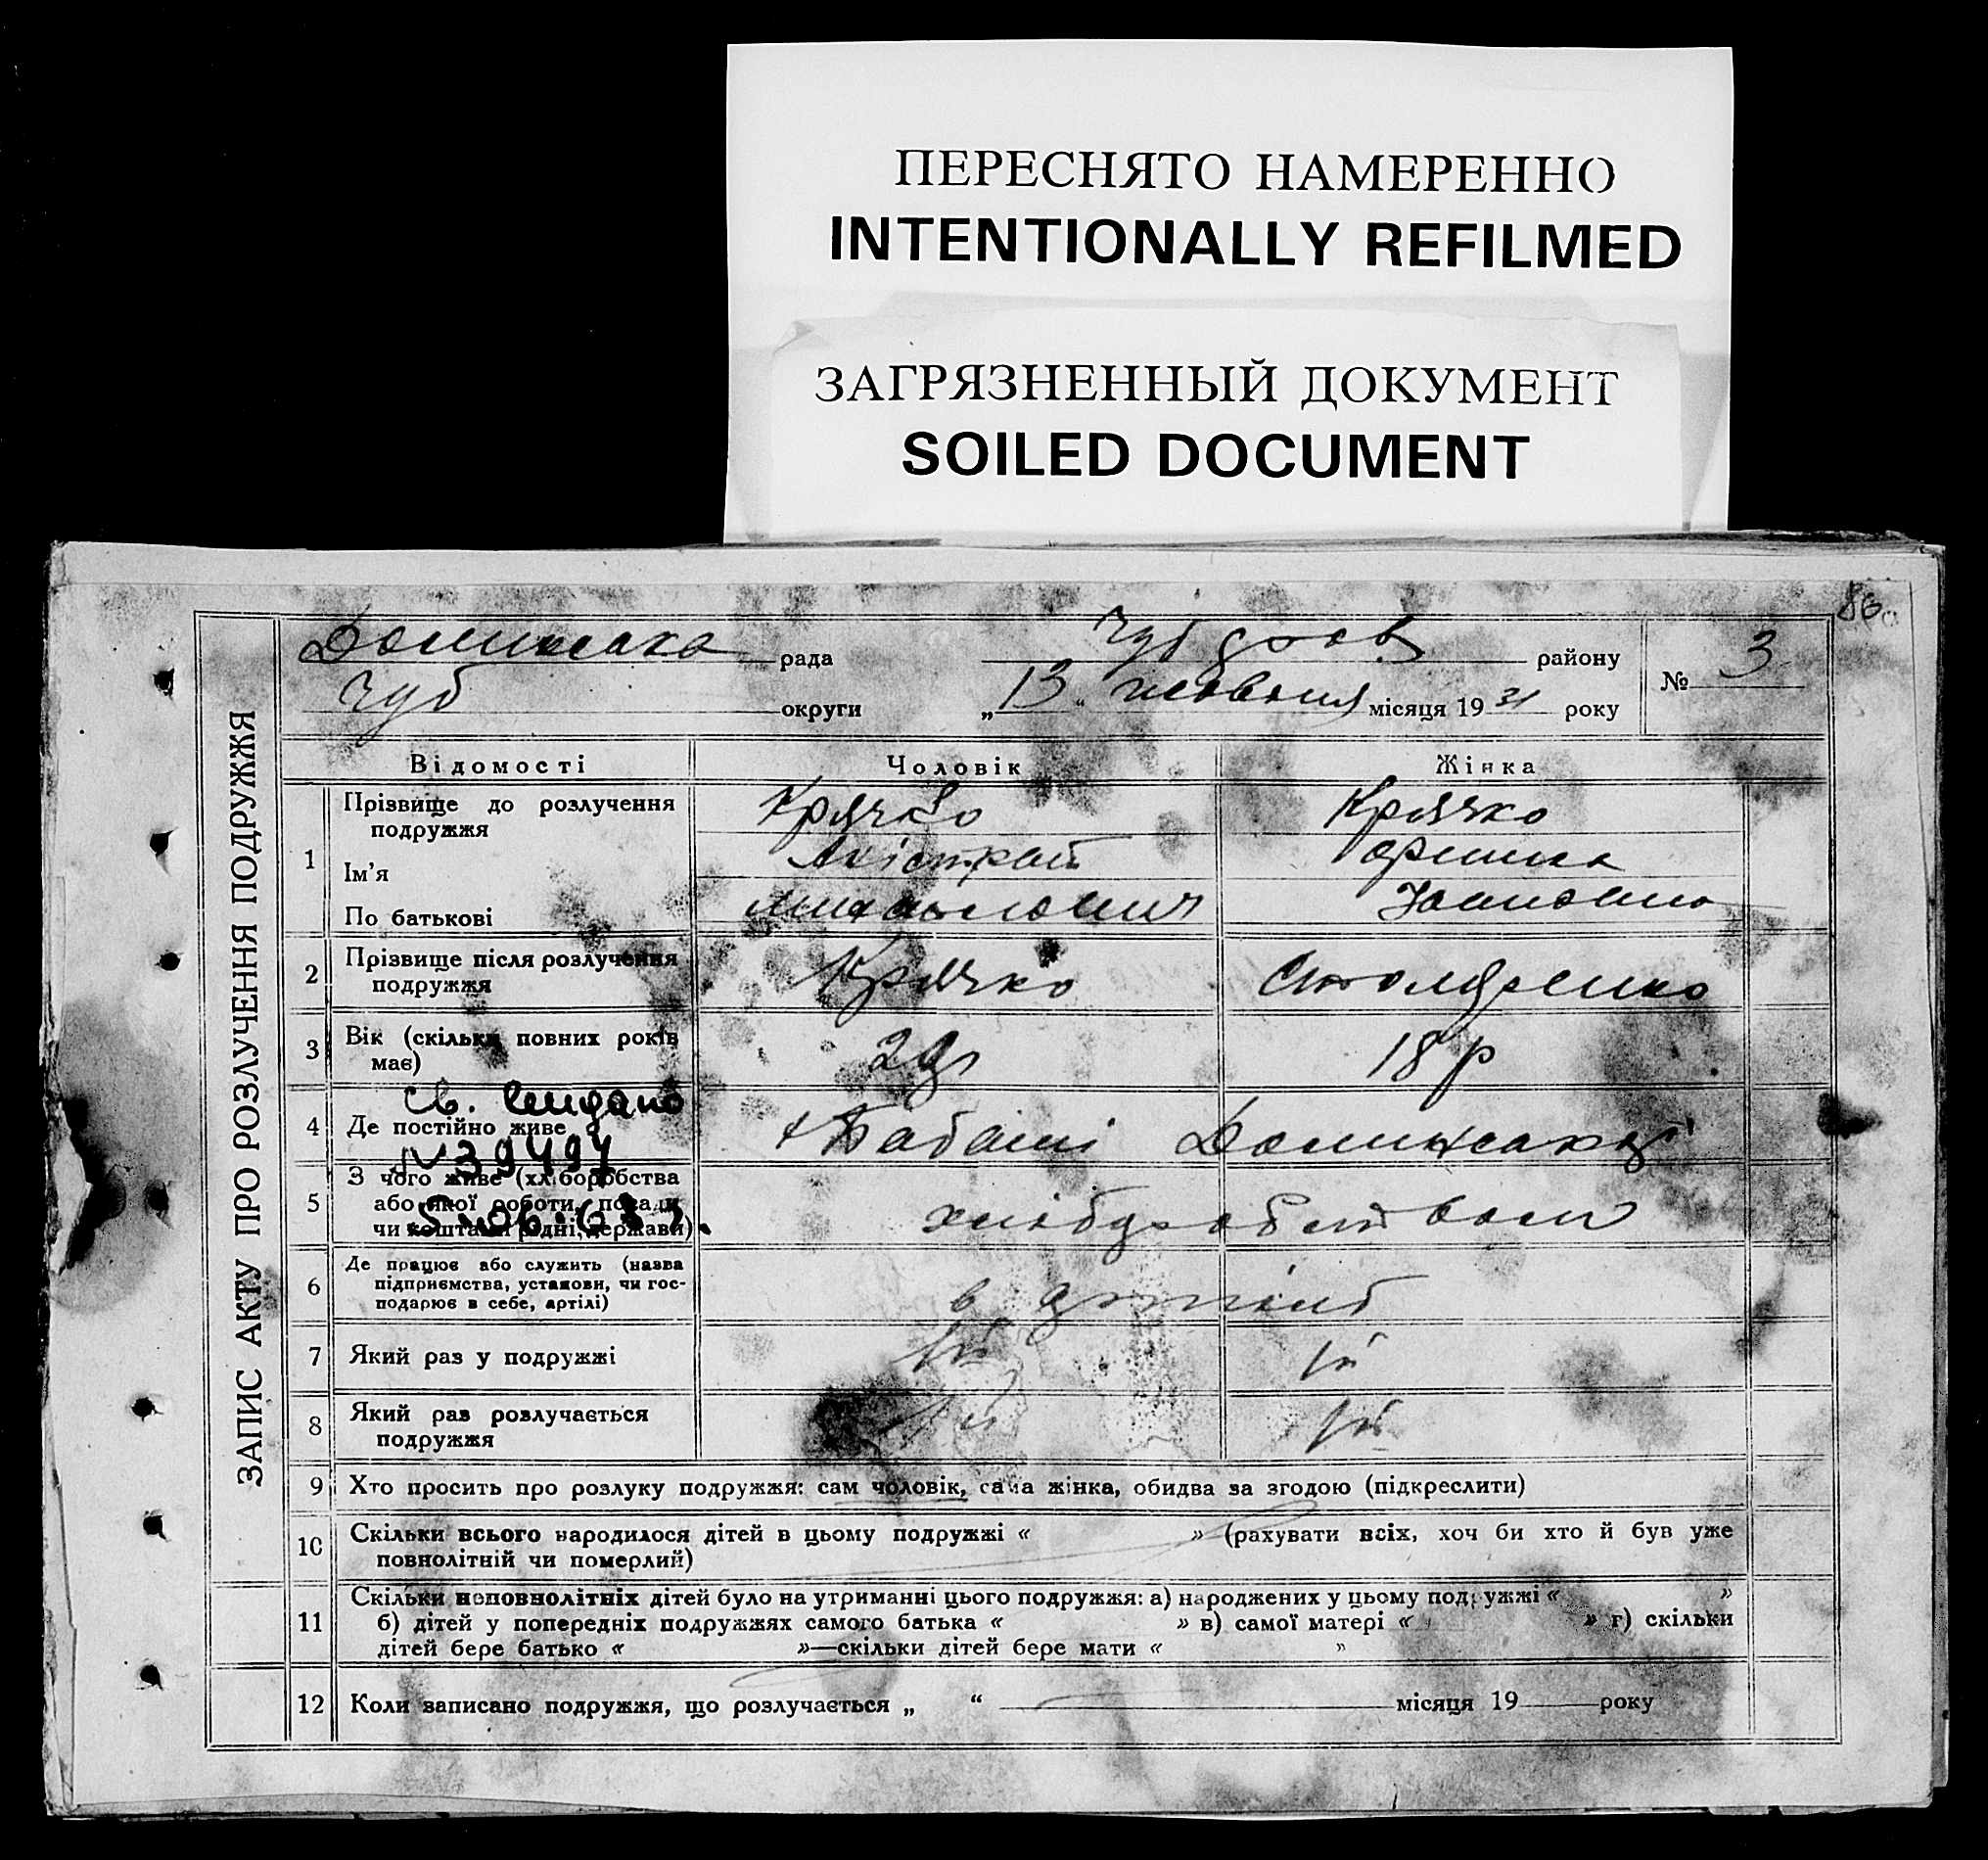 ПЕРЕСНЯТО НАМЕРЕННО
INTENTIONALLY REFILMED
ЗАГРЯЗНЕННЫЙ ДОКУМЕНТ
SOILED DOCUMENT
ЗАПИС АКТУ ПРО РОЗЛУЧЕННЯ ПОДРУЖЖЯ
рада району № 3
Чуб округи „13“ місяця 1931 року
Відомості Чоловік Жінка
1 Прізвище до розлучення Крячко Крячко
подружжя
Ім’я
По батькові
2 Прізвище після розлучення Крячко Столяренко
подружжя
3 Вік (скільки повних років 18 р
має)
св. видано
4 Де постійно живе
№ 39497
5 З чого живе (хліборобства
або якої роботи, посади
чи коштами рідні, держави)
6 Де працює або служить (назва
підприємства, установи, чи гос-
подарює в себе, артілі)
7 Який раз у подружжі 1й 1й
8 Який раз розлучається 1й 1й
подружжя
9 Хто просить про розлуку подружжя: сам чоловік, сама жінка, обидва за згодою (підкреслити)
10 Скільки всього народилося дітей в цьому подружжі « » (рахувати всіх, хоч би хто й був уже
повнолітній чи померлий)
11 Скільки неповнолітніх дітей було на утриманні цього подружжя: а) народжених у цьому подружжі « »
б) дітей у попередніх подружжях самого батька « » в) самої матері « » г) скільки
дітей бере батько « »—скільки дітей бере мати « »
12 Коли записано подружжя, що розлучається „ “ місяця 19 року